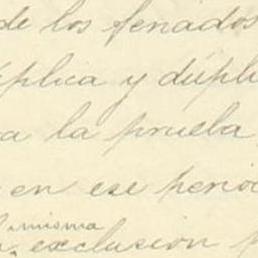 de los penados
úplica y dúpli
a la prueba
en ese perio
misma
exclusion p